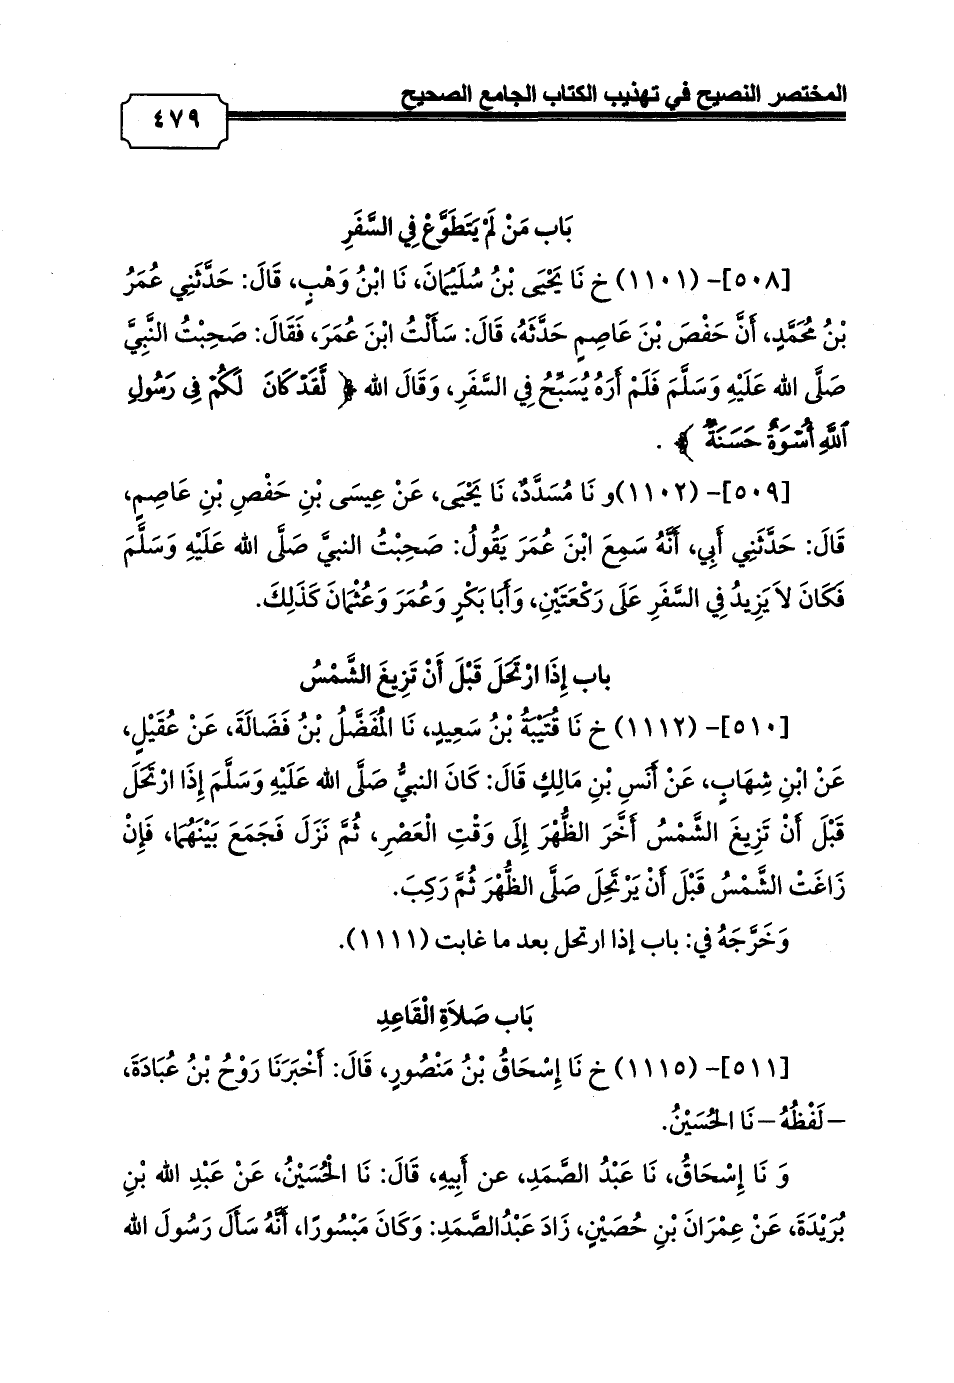 المختصر النصيح في تهذيب الكتاب الجامع الصحيح
٤٧٩
بَاب مَنْ لَمْ يَتَطَوَّعْ فِي السَّفَرِ
[٥٠٨]- (١١٠١) خ نَا يَحْيَى بْنُ سُلَيْمَانَ، نَا ابْنُ وَهْبٍ، قَالَ: حَدَّثَنِي عُمَرُ
بْنُ مُحَمَّدٍ، أَنَّ حَفْصَ بْنَ عَاصِمٍ حَدَّثَهُ، قَالَ: سَأَلْتُ ابْنَ عُمَرَ، فَقَالَ: صَحِبْتُ النَّبِيَّ
صَلَّى الله عَلَيْهِ وَسَلَّمَ فَلَمْ أَرَهُ يُسَبِّحُ فِي السَّفَرِ، وَقَالَ الله ﴿ لَّقَدْ كَانَ لَكُمْ فِي رَسُولِ
ٱللَّهِ أُسْوَةٌ حَسَنَةٌ ﴾ .
[٥٠٩]- (١١٠٢)و نَا مُسَدَّدٌ، نَا يَحْيَى، عَنْ عِيسَى بْنِ حَفْصِ بْنِ عَاصِمٍ،
قَالَ: حَدَّثَنِي أَبِي، أَنَّهُ سَمِعَ ابْنَ عُمَرَ يَقُولُ: صَحِبْتُ النبيَّ صَلَّى الله عَلَيْهِ وَسَلَّمَ
فَكَانَ لاَ يَزِيدُ فِي السَّفَرِ عَلَى رَكْعَتَيْنِ، وَأَبَا بَكْرٍ وَعُمَرَ وَعُثْمَانَ كَذَلِكَ.
باب إِذَا ارْتَحَلَ قَبْلَ أَنْ تَزِيغَ الشَّمْسُ
[٥١٠]- (١١١٢) خ نَا قُتَيْبَةُ بْنُ سَعِيدٍ، نَا الْمُفَضَّلُ بْنُ فَضَالَةَ، عَنْ عُقَيْلٍ،
عَنْ ابْنِ شِهَابٍ، عَنْ أَنَسِ بْنِ مَالِكٍ قَالَ: كَانَ النبيُّ صَلَّى الله عَلَيْهِ وَسَلَّمَ إِذَا ارْتَحَلَ
قَبْلَ أَنْ تَزِيغَ الشَّمْسُ أَخَّرَ الظُّهْرَ إِلَى وَقْتِ الْعَصْرِ، ثُمَّ نَزَلَ فَجَمَعَ بَيْنَهُمَا، فَإِنْ
زَاغَتْ الشَّمْسُ قَبْلَ أَنْ يَرْتَحِلَ صَلَّى الظُّهْرَ ثُمَّ رَكِبَ.
وَخَرَّجَهُ في: باب إذا ارتحل بعد ما غابت (١١١١).
بَاب صَلاَةِ الْقَاعِدِ
[٥١١]- (١١١٥) خ نَا إِسْحَاقُ بْنُ مَنْصُورٍ، قَالَ: أَخْبَرَنَا رَوْحُ بْنُ عُبَادَةَ،
– لَفْظُهُ – نَا الحُسَيْنُ.
وَ نَا إِسْحَاقُ، نَا عَبْدُ الصَّمَدِ، عن أَبِيهِ، قَالَ: نَا الْحُسَيْنُ، عَنْ عَبْدِ الله بْنِ
بُرَيْدَةَ، عَنْ عِمْرَانَ بْنِ حُصَيْنٍ، زَادَ عَبْدُالصَّمَدِ: وَكَانَ مَبْسُورًا، أَنَّهُ سَأَلَ رَسُولَ الله